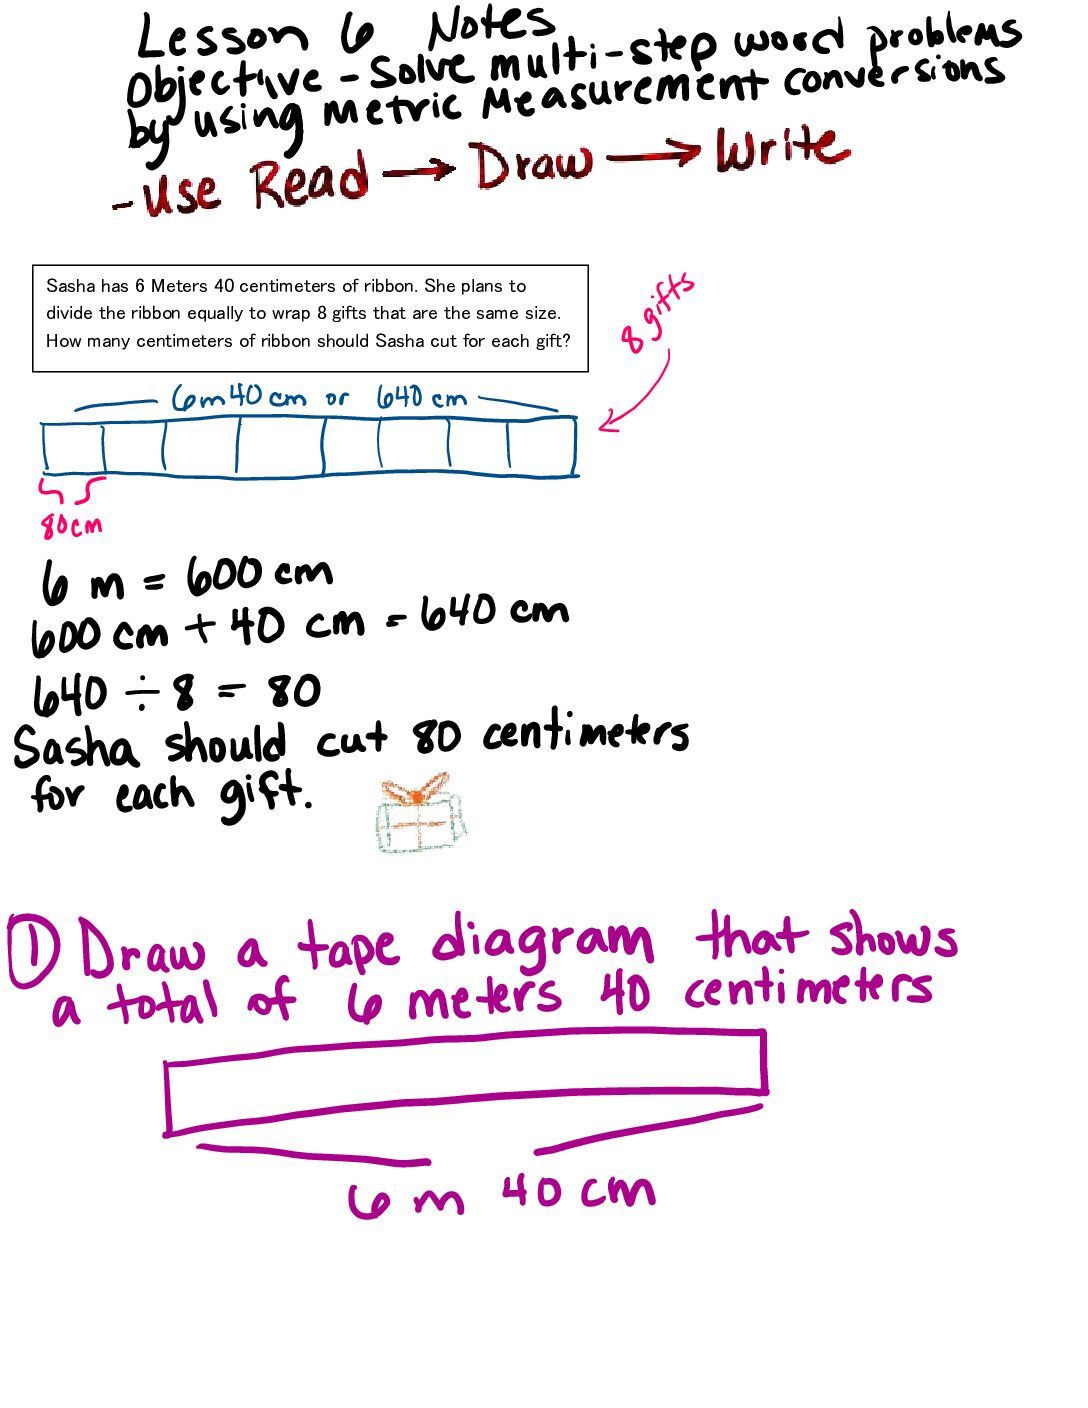 Lesson 6 Notes
Objective - Solve multi-step word problems
by using Metric Measurement conversions
- Use Read → Draw → Write
Sasha has 6 Meters 40 centimeters of ribbon. She plans to
divide the ribbon equally to wrap 8 gifts that are the same size.
How many centimeters of ribbon should Sasha cut for each gift?
8 gifts
6m 40 cm or 640 cm
80cm
6 m = 600 cm
600 cm + 40 cm = 640 cm
640 ÷ 8 = 80
Sasha should cut 80 centimeters
for each gift.
① Draw a tape diagram that shows
a total of 6 meters 40 centimeters
6 m 40 cm